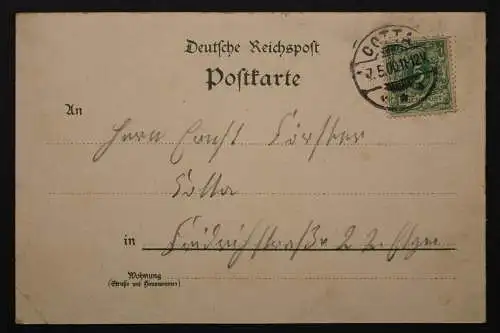 Deutsche Reichspost
Postkarte
COTTA
7.5.00.11-12V.
An
Herrn Ernst Förster
Cotta
in Friedrichstraße 22 Etge
Wohnung
(Straße und Hausnummer)